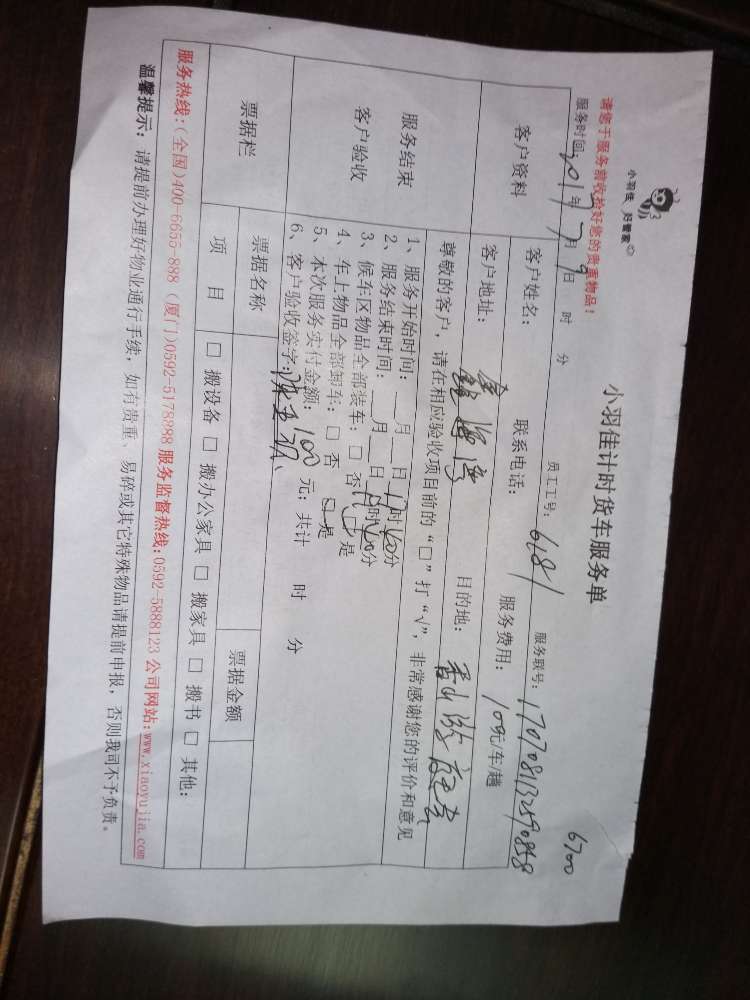 小羽佳 好管家
小羽佳计时货车服务单
6700
请您于服务前收拾好您的贵重物品！
服务时间：2017年7月9日 时 分 员工工号：6181 服务联号：1707081132590858
客户资料
客户姓名： 联系电话： 服务费用：100元/车/趟
客户地址： 目的地：
服务结束
客户验收
尊敬的客户，请在相应验收项目前的“□”打“√”，非常感谢您的评价和意见
1、服务开始时间：__月__日17时 分
2、服务结束时间：__月__日 时 分
3、候车区物品全部装车：□ 否 □ 是
4、车上物品全部卸车：□ 否 □ 是
5、本次服务实付金额：100 元；共计 时 分
6、客户验收签字：
票据栏
票据名称 票据金额
项 目 □ 搬设备 □ 搬办公家具 □ 搬家具 □ 搬书 □ 其他：
服务热线：(全国)400-6655-888 (厦门)0592-5178888 服务监督热线:0592-5888123 公司网站:www.xiaoyujia.com
温馨提示：请提前办理好物业通行手续，如有贵重、易碎或其它特殊物品请提前申报，否则我司不予负责。